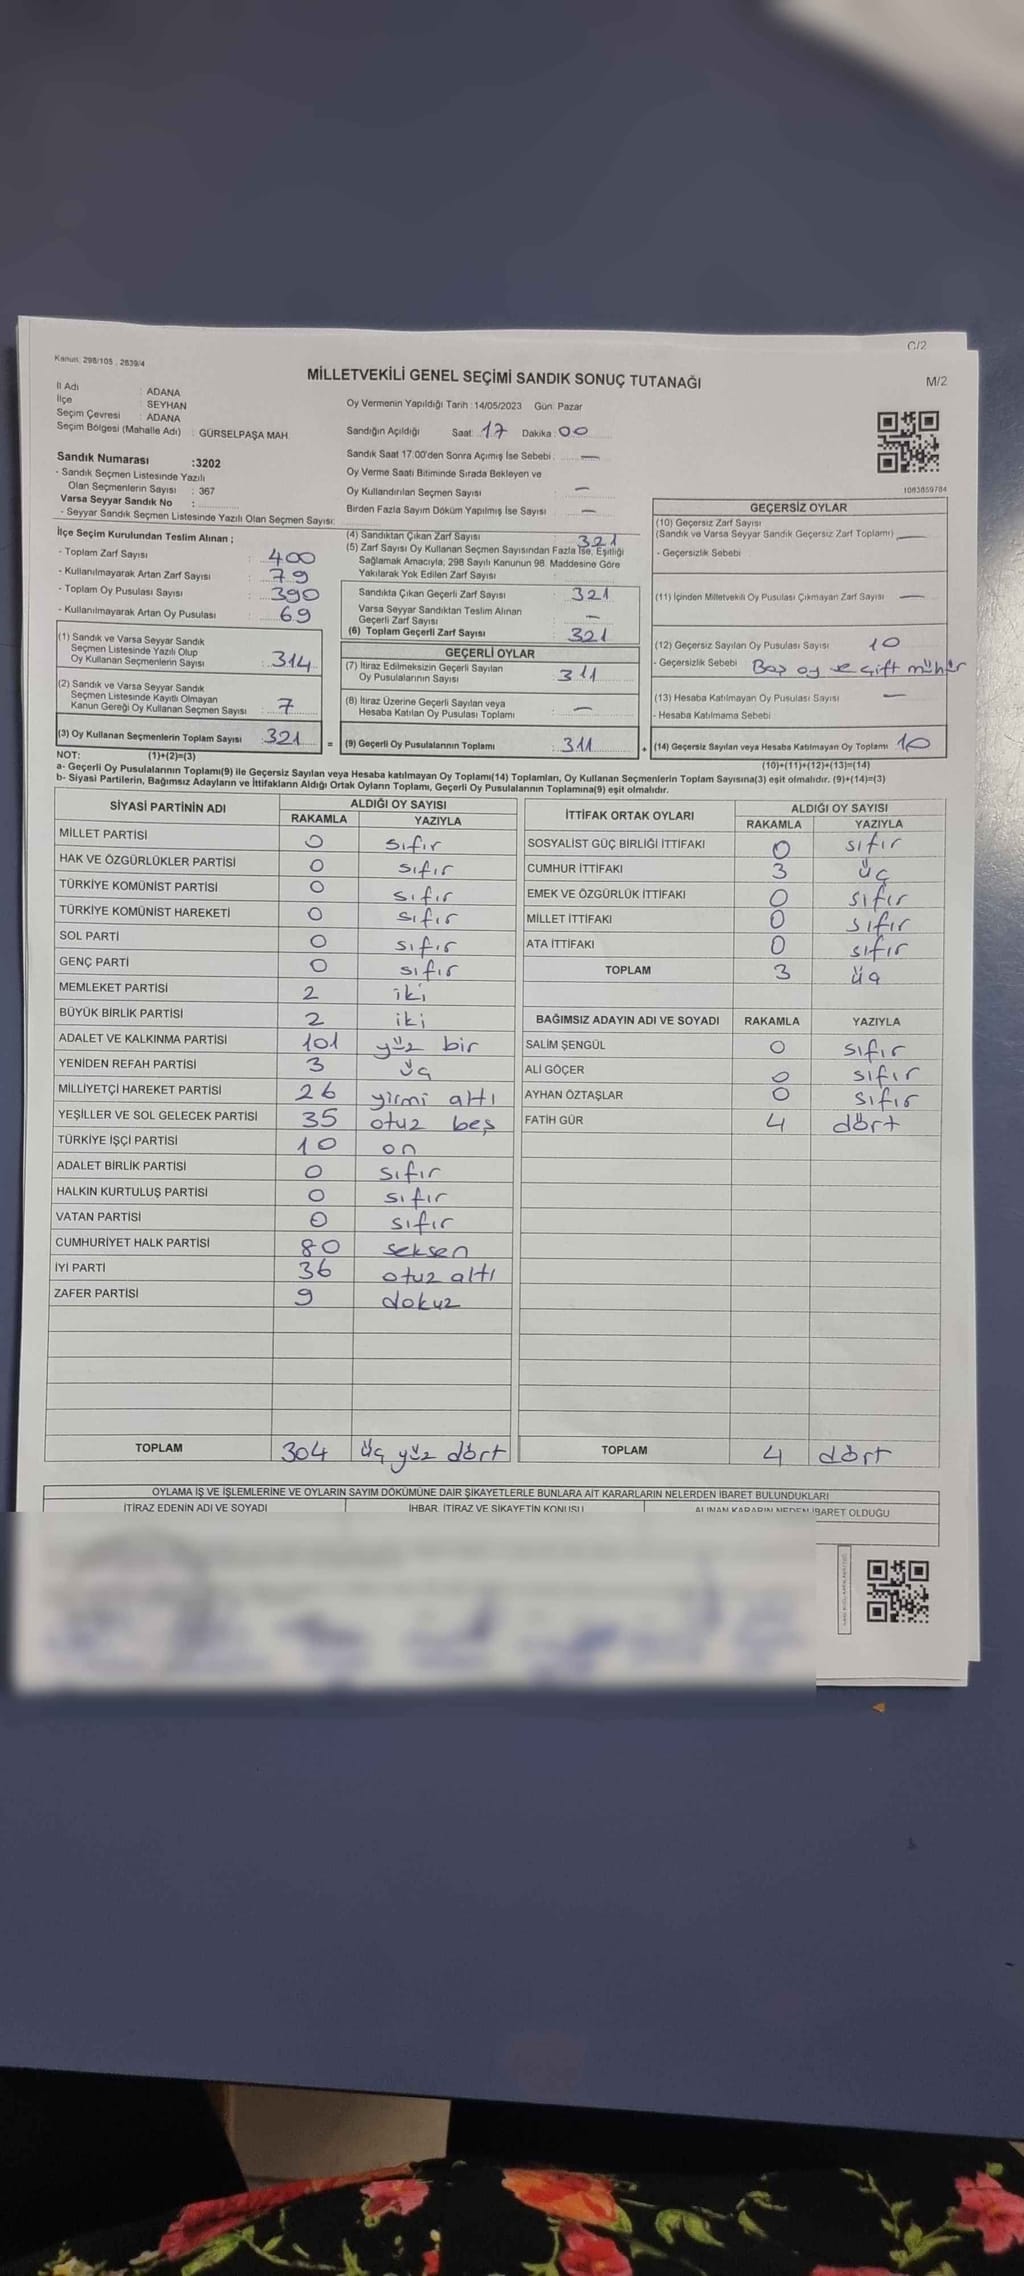 C/2
Kanun: 298/105 , 2839/4
MİLLETVEKİLİ GENEL SEÇİMİ SANDIK SONUÇ TUTANAĞI
M/2
İl Adı : ADANA
İlçe : SEYHAN
Seçim Çevresi : ADANA
Seçim Bölgesi (Mahalle Adı) : GÜRSELPAŞA MAH.
Sandık Numarası :3202
- Sandık Seçmen Listesinde Yazılı
Olan Seçmenlerin Sayısı : 367
Varsa Seyyar Sandık No :
- Seyyar Sandık Seçmen Listesinde Yazılı Olan Seçmen Sayısı:
Oy Vermenin Yapıldığı Tarih :14/05/2023 Gün: Pazar
Sandığın Açıldığı Saat: 17 Dakika: 00
Sandık Saat 17.00'den Sonra Açımış İse Sebebi: —
Oy Verme Saati Bitiminde Sırada Bekleyen ve
Oy Kullandırılan Seçmen Sayısı : —
Birden Fazla Sayım Döküm Yapılmış İse Sayısı : —
1083859784
İlçe Seçim Kurulundan Teslim Alınan ;
- Toplam Zarf Sayısı : 400
- Kullanılmayarak Artan Zarf Sayısı : 79
- Toplam Oy Pusulası Sayısı : 390
- Kullanılmayarak Artan Oy Pusulası : 69
(1) Sandık ve Varsa Seyyar Sandık
Seçmen Listesinde Yazılı Olup
Oy Kullanan Seçmenlerin Sayısı : 314
(2) Sandık ve Varsa Seyyar Sandık
Seçmen Listesinde Kayıtlı Olmayan
Kanun Gereği Oy Kullanan Seçmen Sayısı : 7
(3) Oy Kullanan Seçmenlerin Toplam Sayısı : 321
(4) Sandıktan Çıkan Zarf Sayısı : 321
(5) Zarf Sayısı Oy Kullanan Seçmen Sayısından Fazla İse, Eşitliği
Sağlamak Amacıyla, 298 Sayılı Kanunun 98. Maddesine Göre
Yakılarak Yok Edilen Zarf Sayısı :
Sandıkta Çıkan Geçerli Zarf Sayısı : 321
Varsa Seyyar Sandıktan Teslim Alınan
Geçerli Zarf Sayısı : —
(6) Toplam Geçerli Zarf Sayısı : 321
GEÇERLİ OYLAR
(7) İtiraz Edilmeksizin Geçerli Sayılan
Oy Pusulalarının Sayısı : 311
(8) İtiraz Üzerine Geçerli Sayılan veya
Hesaba Katılan Oy Pusulası Toplamı : —
= (9) Geçerli Oy Pusulalarının Toplamı : 311
GEÇERSİZ OYLAR
(10) Geçersiz Zarf Sayısı
(Sandık ve Varsa Seyyar Sandık Geçersiz Zarf Toplamı) : —
- Geçersizlik Sebebi :
(11) İçinden Milletvekili Oy Pusulası Çıkmayan Zarf Sayısı : —
(12) Geçersiz Sayılan Oy Pusulası Sayısı : 10
- Geçersizlik Sebebi : Boş oy ve çift mühür
(13) Hesaba Katılmayan Oy Pusulası Sayısı : —
- Hesaba Katılmama Sebebi :
+ (14) Geçersiz Sayılan veya Hesaba Katılmayan Oy Toplamı : 10
NOT: (1)+(2)=(3)
(10)+(11)+(12)+(13)=(14)
a- Geçerli Oy Pusulalarının Toplamı(9) ile Geçersiz Sayılan veya Hesaba katılmayan Oy Toplamı(14) Toplamları, Oy Kullanan Seçmenlerin Toplam Sayısına(3) eşit olmalıdır. (9)+(14)=(3)
b- Siyasi Partilerin, Bağımsız Adayların ve İttifakların Aldığı Ortak Oyların Toplamı, Geçerli Oy Pusulalarının Toplamına(9) eşit olmalıdır.
SİYASİ PARTİNİN ADI ALDIĞI OY SAYISI
RAKAMLA YAZIYLA
MİLLET PARTİSİ 0 sıfır
HAK VE ÖZGÜRLÜKLER PARTİSİ 0 sıfır
TÜRKİYE KOMÜNİST PARTİSİ 0 sıfır
TÜRKİYE KOMÜNİST HAREKETİ 0 sıfır
SOL PARTİ 0 sıfır
GENÇ PARTİ 0 sıfır
MEMLEKET PARTİSİ 2 iki
BÜYÜK BİRLİK PARTİSİ 2 iki
ADALET VE KALKINMA PARTİSİ 101 yüz bir
YENİDEN REFAH PARTİSİ 3 üç
MİLLİYETÇİ HAREKET PARTİSİ 26 yirmi altı
YEŞİLLER VE SOL GELECEK PARTİSİ 35 otuz beş
TÜRKİYE İŞÇİ PARTİSİ 10 on
ADALET BİRLİK PARTİSİ 0 sıfır
HALKIN KURTULUŞ PARTİSİ 0 sıfır
VATAN PARTİSİ 0 sıfır
CUMHURİYET HALK PARTİSİ 80 seksen
İYİ PARTİ 36 otuz altı
ZAFER PARTİSİ 9 dokuz
TOPLAM 304 üç yüz dört
İTTİFAK ORTAK OYLARI ALDIĞI OY SAYISI
RAKAMLA YAZIYLA
SOSYALİST GÜÇ BİRLİĞİ İTTİFAKI 0 sıfır
CUMHUR İTTİFAKI 3 üç
EMEK VE ÖZGÜRLÜK İTTİFAKI 0 sıfır
MİLLET İTTİFAKI 0 sıfır
ATA İTTİFAKI 0 sıfır
TOPLAM 3 üç
BAĞIMSIZ ADAYIN ADI VE SOYADI RAKAMLA YAZIYLA
SALİM ŞENGÜL 0 sıfır
ALİ GÖÇER 0 sıfır
AYHAN ÖZTAŞLAR 0 sıfır
FATİH GÜR 4 dört
TOPLAM 4 dört
OYLAMA İŞ VE İŞLEMLERİNE VE OYLARIN SAYIM DÖKÜMÜNE DAİR ŞİKAYETLERLE BUNLARA AİT KARARLARIN NELERDEN İBARET BULUNDUKLARI
İTİRAZ EDENİN ADI VE SOYADI İHBAR, İTİRAZ VE ŞİKAYETİN KONUSU ALINAN KARARIN NEDEN İBARET OLDUĞU